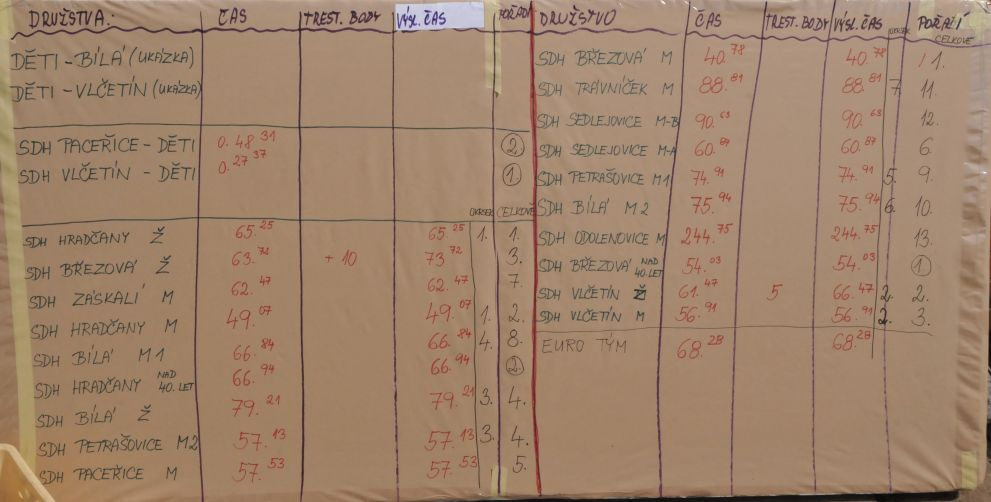 DRUŽSTVA: ČAS TREST. BODY VÝSL. ČAS POŘADÍ
DĚTI - BÍLÁ (UKÁZKA)
DĚTI - VLČETÍN (UKÁZKA)
SDH PACEŘICE - DĚTI 0.48 31 2
SDH VLČETÍN - DĚTI 0.27 37 1
OKRSEK CELKOVĚ
SDH HRADČANY Ž 65.25 65.25 1. 1.
SDH BŘEZOVÁ Ž 63.72 + 10 73 72 3.
SDH ZÁSKALÍ M 62.47 62.47 7.
SDH HRADČANY M 49.07 49.07 1. 2.
SDH BÍLÁ M1 66.84 66.84 4. 8.
SDH HRADČANY NAD 40.LET 66.94 66.94 2.
SDH BÍLÁ Ž 79.21 79.21 3. 4.
SDH PETRAŠOVICE M2 57.13 57.13 3. 4.
SDH PACEŘICE M 57.53 57.53 5.
DRUŽSTVO ČAS TREST. BODY VÝSL. ČAS OKRSEK POŘADÍ CELKOVĚ
SDH BŘEZOVÁ M 40.78 40.78 1.
SDH TRÁVNÍČEK M 88.81 88.81 7. 11.
SDH SEDLEJOVICE M-B 90.63 90.63 12.
SDH SEDLEJOVICE M-A 60.87 60.87 6
SDH PETRAŠOVICE M1 74.91 74.91 5. 9.
SDH BÍLÁ M2 75.94 75.94 6. 10.
SDH ODOLENOVICE M 244.75 244.75 13.
SDH BŘEZOVÁ NAD 40.LET 54.03 54.03 1.
SDH VLČETÍN Ž 61.47 5 66.47 2. 2.
SDH VLČETÍN M 56.91 56.91 2. 3.
EURO TÝM 68.28 68.28